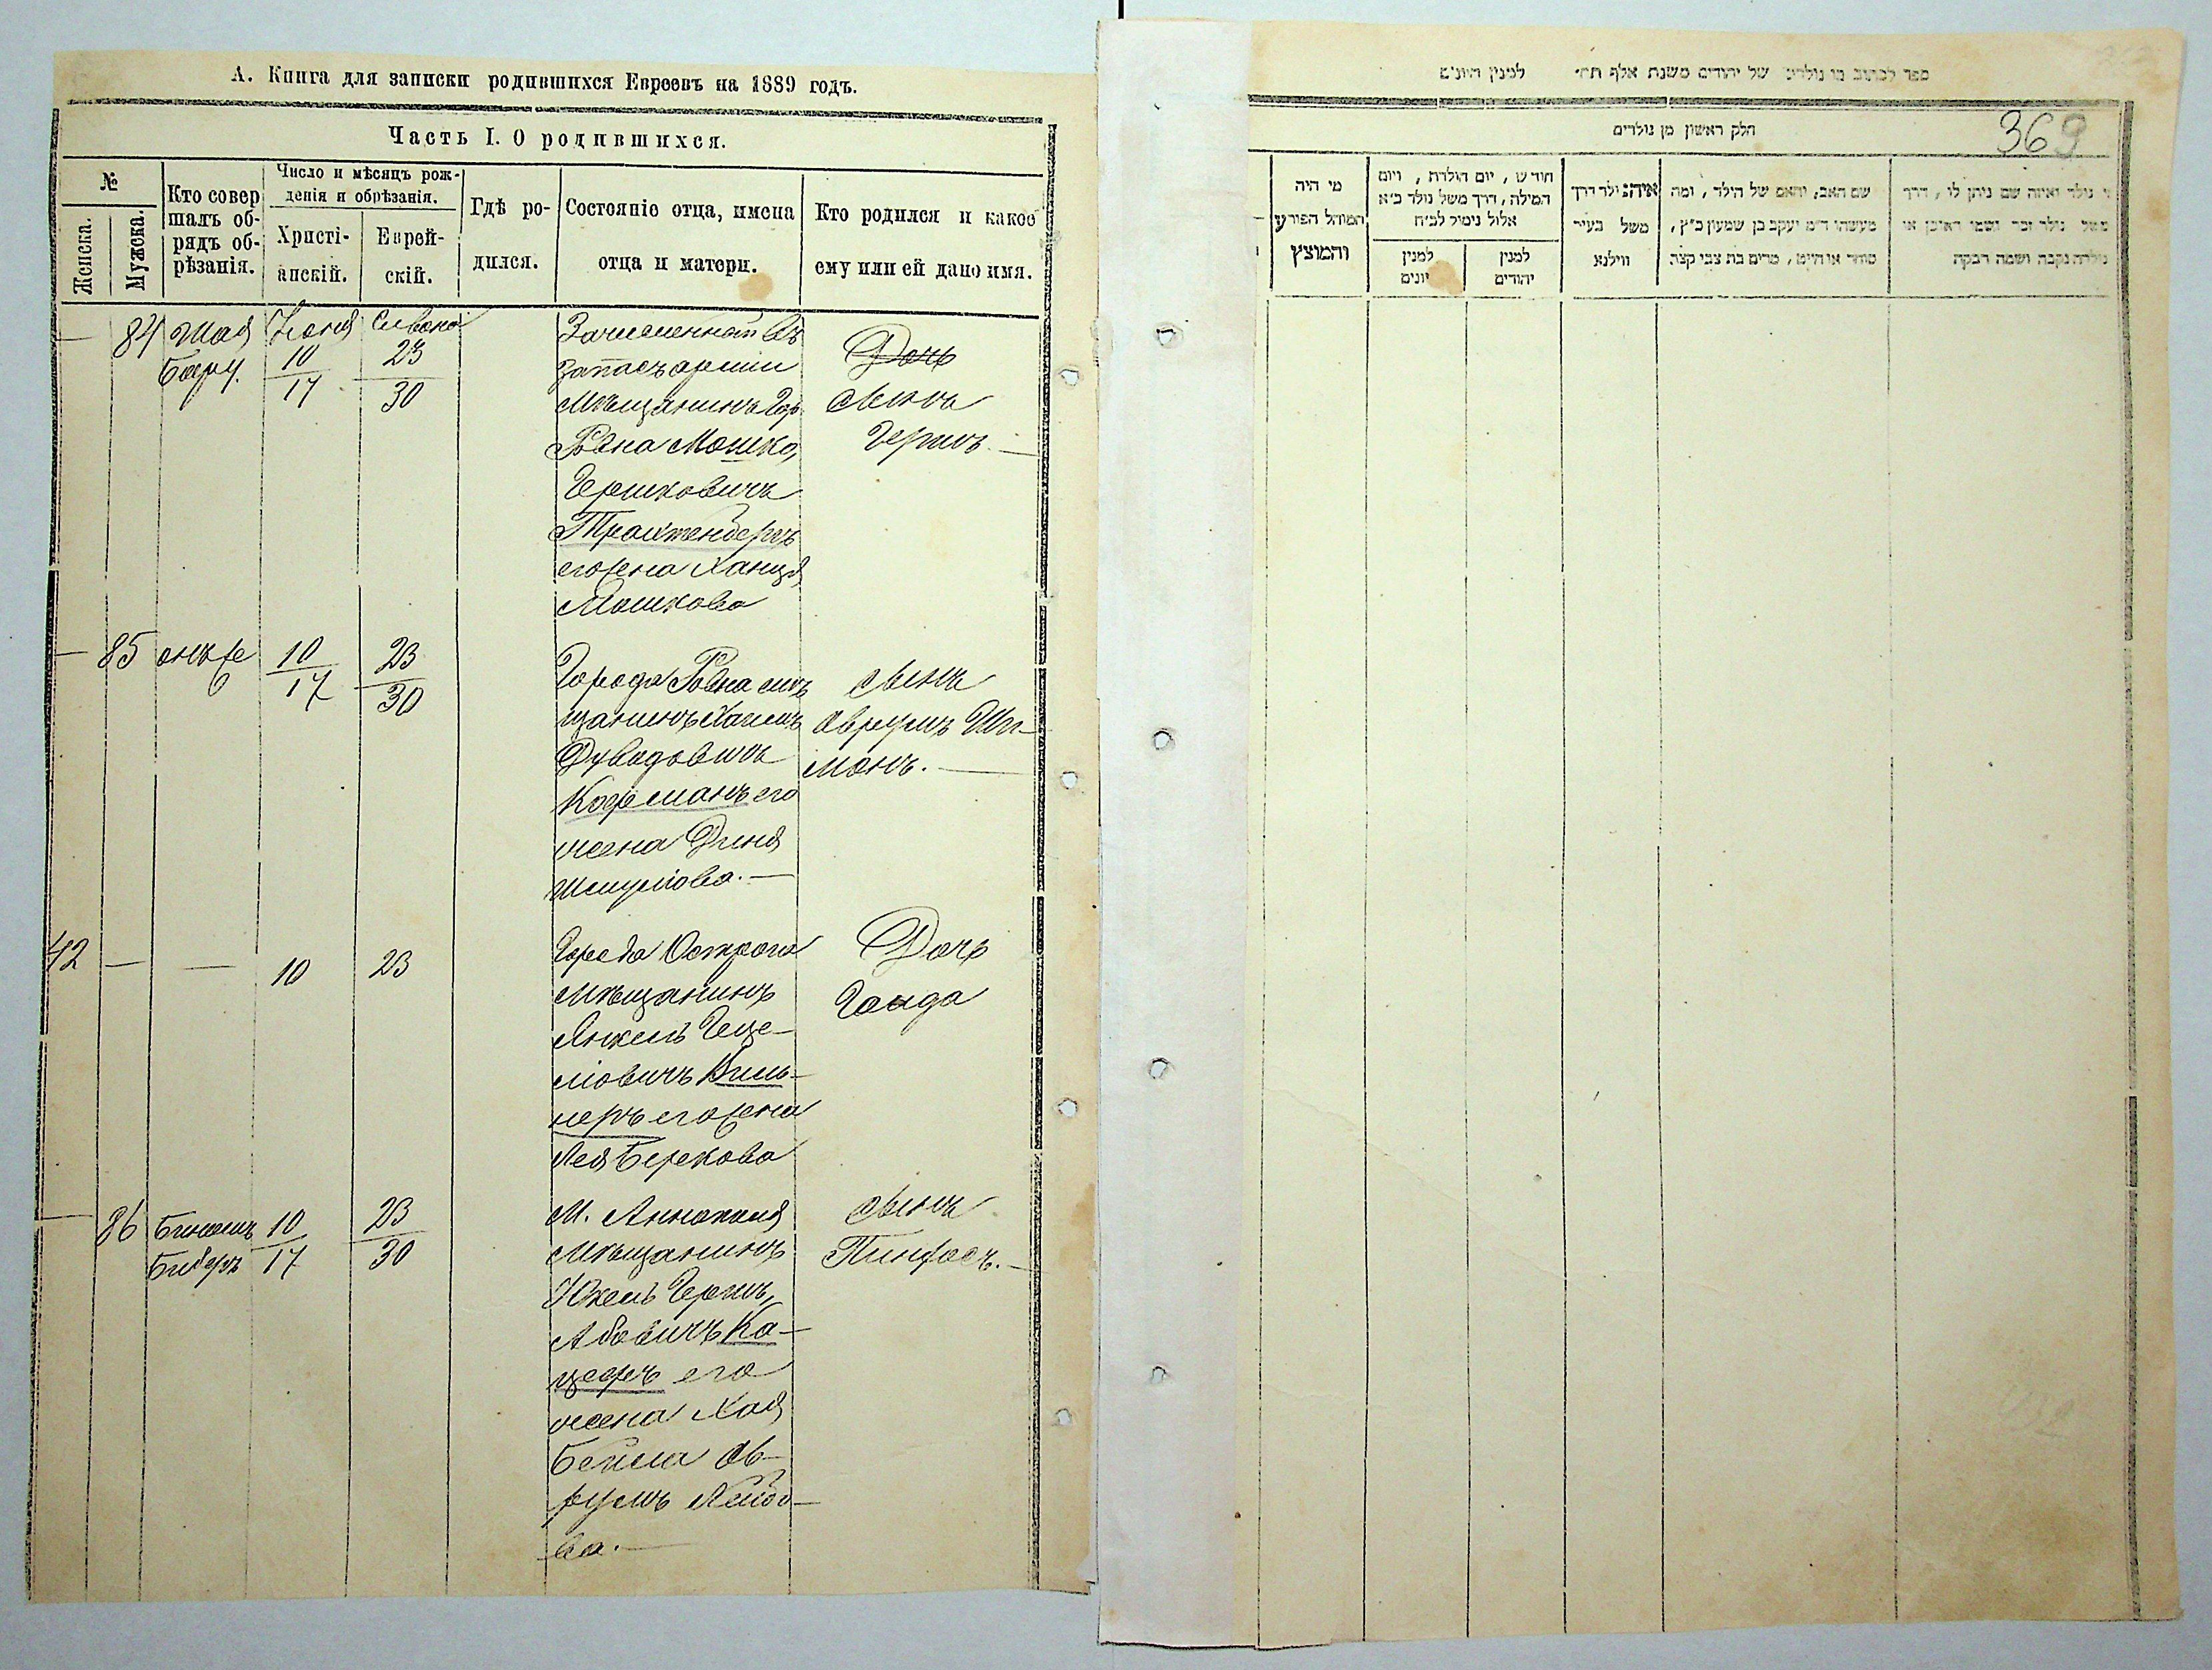 А. Книга для записки родившихся Евреевъ на 1889 годъ.
Часть I. О родившихся.
№
Женска.
Мужска.
Кто совер
шалъ об-
рядъ об-
рѣзанія.
Число и мѣсяцъ рож-
денія и обрѣзанія.
Христі-
анскій.
Еврей-
скій.
Гдѣ ро-
дился.
Состояніе отца, имена
отца и матери.
Кто родился и какое
ему или ей дано имя.
— 84
Шая
Бару.
Іюня
10
17
Сивона
23
30
Зачисленный въ
запасъ арміи
Мѣщанинъ Гор.
Ровна Мошко
Гершковичъ
Трахтенбергъ
его жена Ханця
Мошкова
Дочь
Сынъ
Гершъ. —
— 85
онъ же
10
17
23
30
Города Ровна мѣ
щанинъ Хаимъ
Дувидовичъ
Кофманъ его
жена Диня
Шмулiова. —
Сынъ
Аврумъ Ши-
монъ. —
42 — —
10
23
Города Острога
Мѣщанинъ
Янкель Геце-
ліовичъ Виль-
неръ его жена
Лея Берекова
Дочь
Гоида
— 86
Биномъ
Биберъ
10
17
23
30
М. Аннополя
Мѣщанинъ
Юкель Гершъ
Абовичъ Ка-
цефъ его
жена Хая
Бейла Ав-
румъ Лейбо-
ва. —
Сынъ
Пинхосъ. —
ספר לכתוב בו נולדים של יהודים משנת אלף תת״ למנין היונים
369
חלק ראשון מן נולדים
מי היה
המוהל הפורע
והמוצץ
חודש, יום הולדת, ויום
המילה, דרך משל נולד כ״א
אלול נימול לכ״ח
למנין
יונים
למנין
יהודים
איה נולד דרך
משל בעיר
ווילנא
שם האב, והאם של הילד, ומה
מעשהו ד״מ יעקב בן שמעון כ״ץ,
סוחר או חייט, מרים בת צבי קצב
נולד ואיזה שם ניתן לו, דרך
משל נולד זכר ושמו ראובן או
נולדה נקבה ושמה רבקה